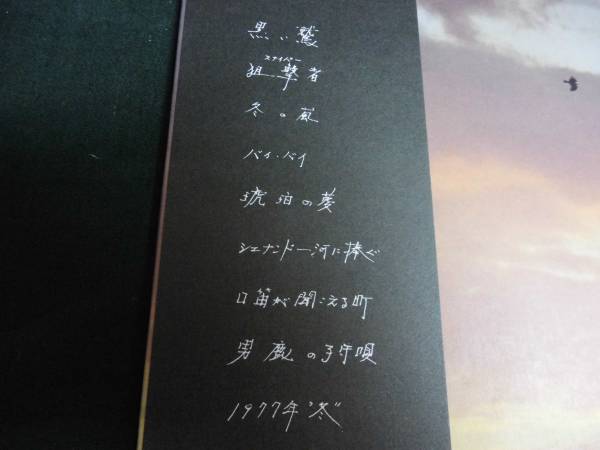 黒い鷲
スナイパー
狙撃者
冬の嵐
バイ・バイ
琥珀の夢
シェナンドー河に捧ぐ
口笛が聞こえる町
男鹿の子守唄
1977年"冬"